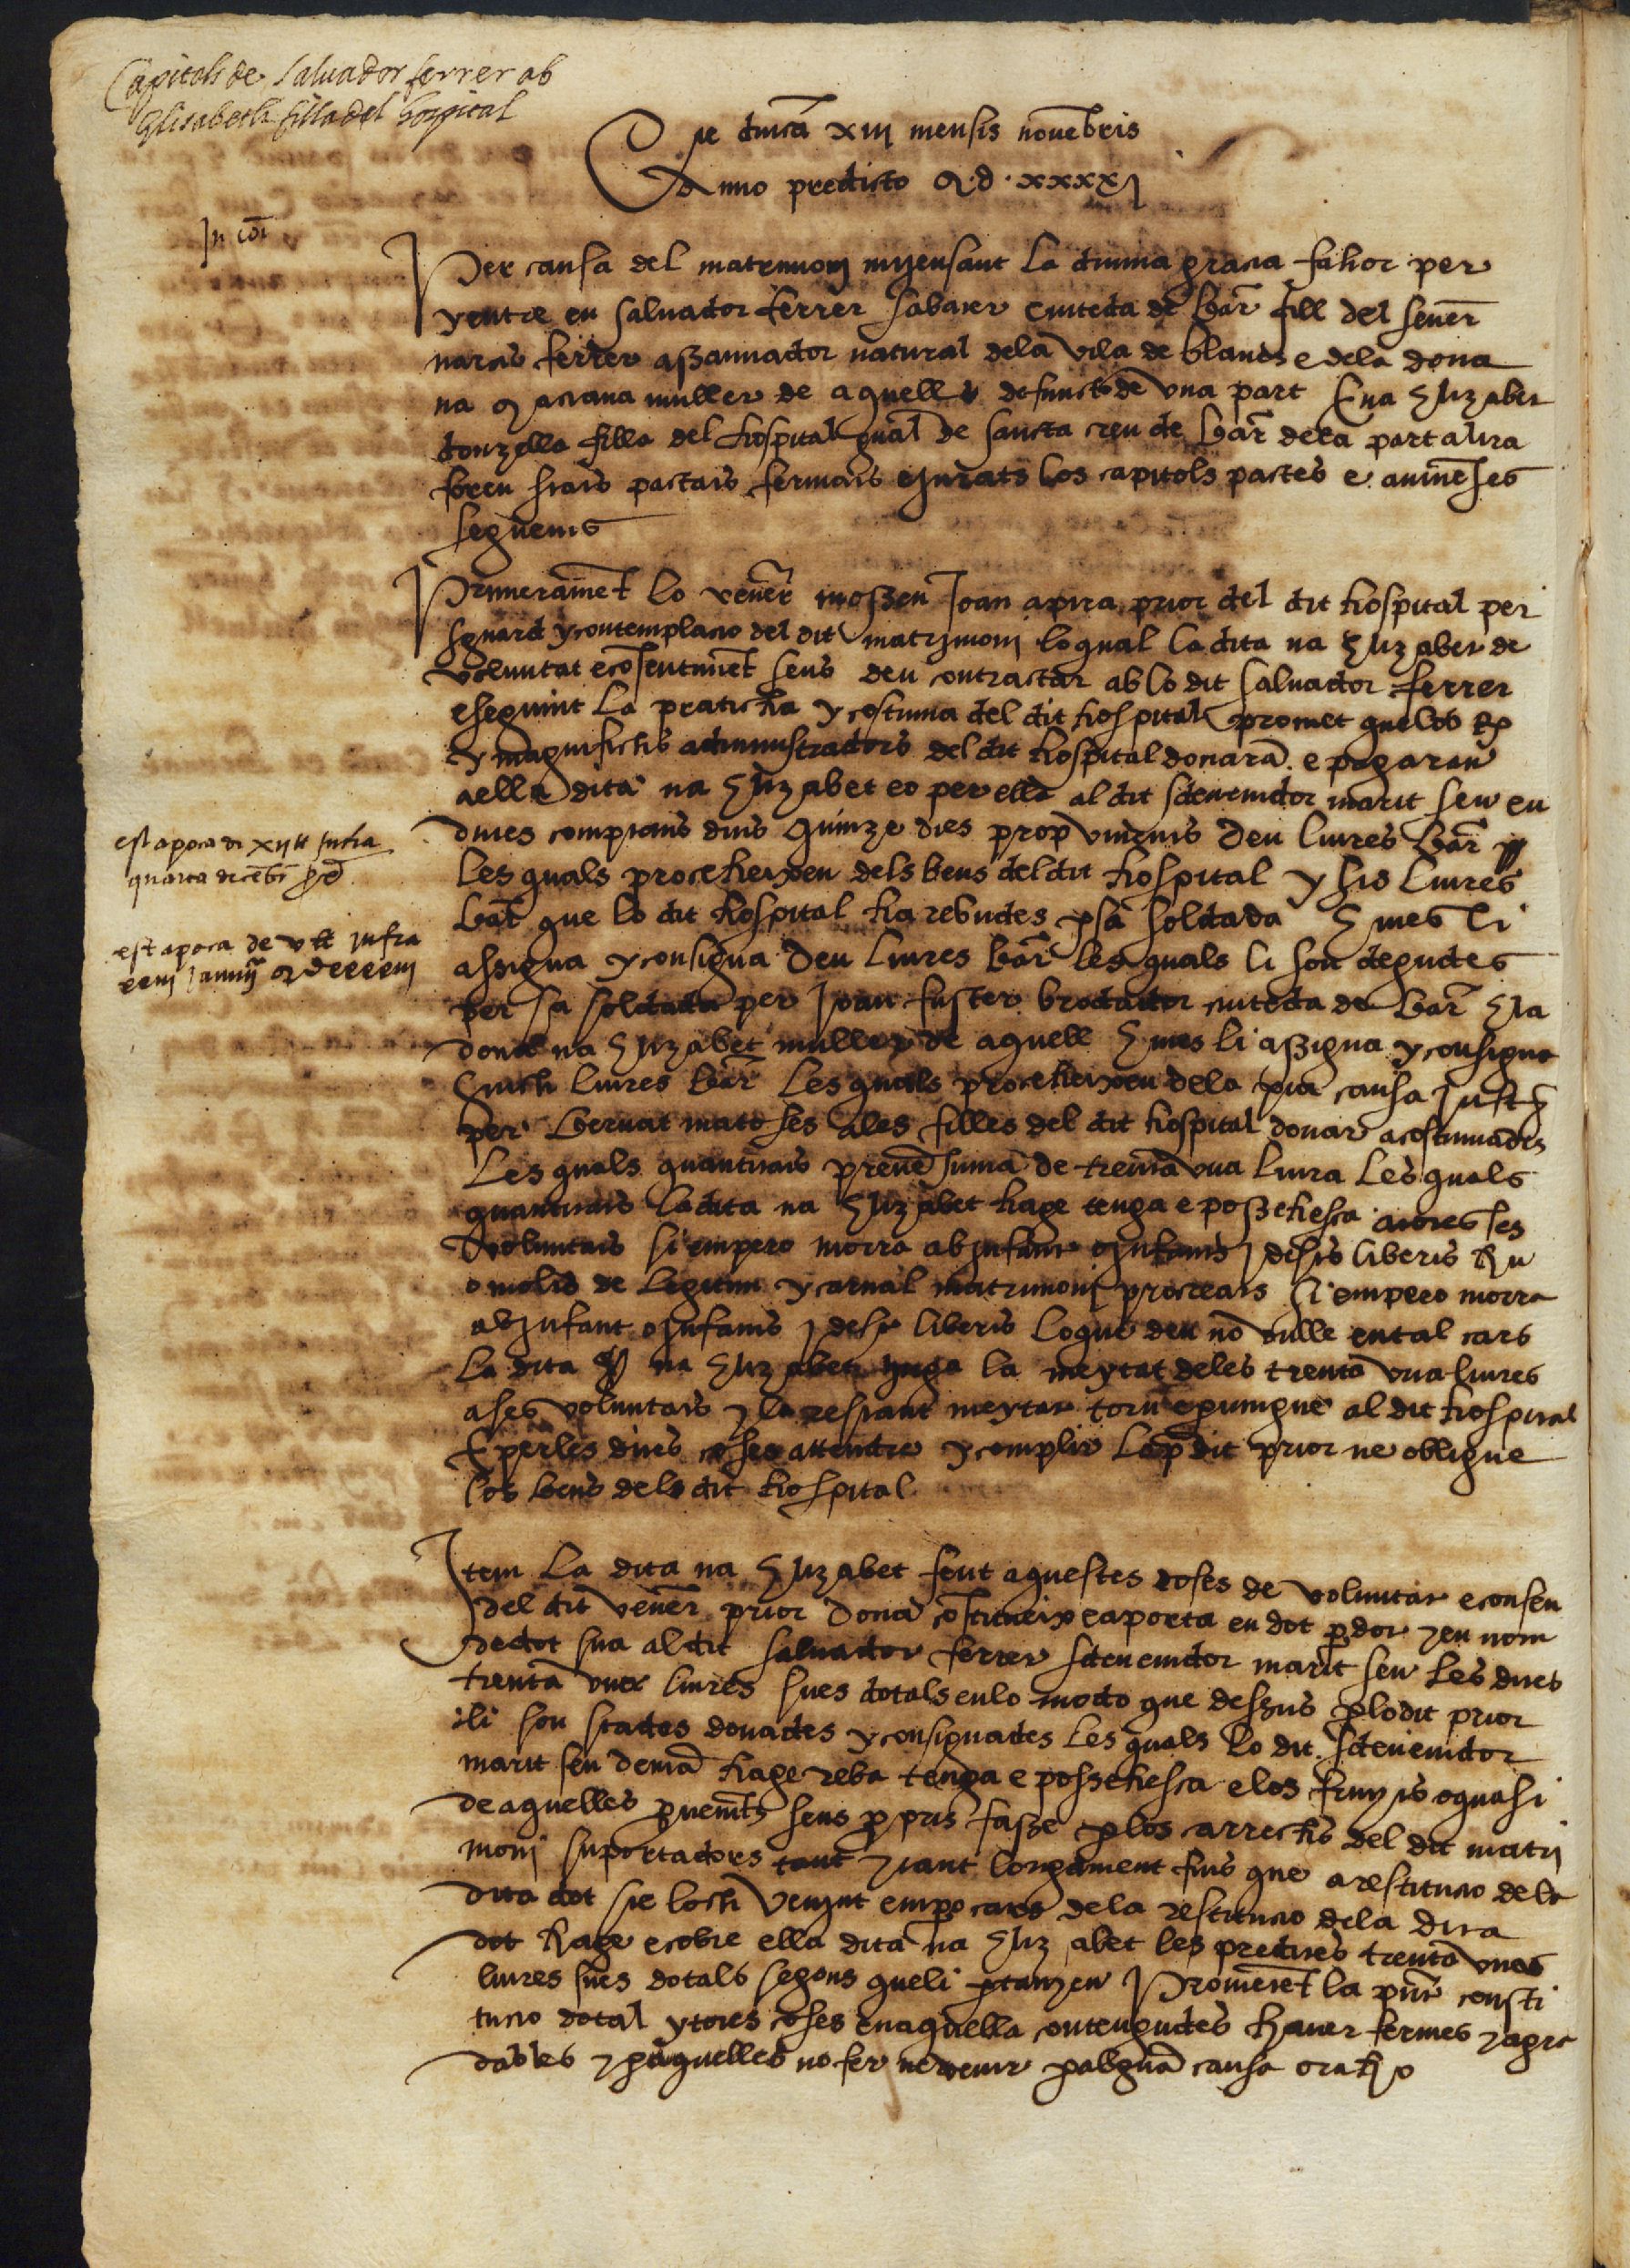 Capitols de Saluador ferrer ab
Elisabeth filla del hospital
Die dnica XIII mensis nouēbris
Anno predicto M d XXXXI
In coi
Per causa del matrimonj mijensant la diuina gracia fahor per
y entre en Saluador ferrer sabater ciutedа de bar fill del sener
narcis ferrer assaunador natural dela vila de blanes e dela dona
na maciana muller de aquell defuncts de vna part E na Elizabet
donzella filla del hospital gnāl de sancta creu de bar dela part altra
foren stats pactats fermats e jurats los capitols pactes e auinēses
seguents
Primeramēt lo venēr mossen Joan apira prior del dit hospital per
sguard y contemplacio del dit matrjmonj loqual la dita na Elizabet de
voluntat e cōsentimēt seus deu contractar ab lo dit saluador ferrer
e seguint la praticha y costuma del dit hospital promet que los Rṣ
y magnifichs administradors del dit hospital donarā e pagaran
a ella dita na Elizabet eo per ella al dit sdeuenidor marit seu en
dines comptans dins quinze dies prop vinents deu liures bar
les quals procehexen dels bens del dit hospital y sis liures
bar que lo dit hospital ha rebudes p sa soldada E mes li
assigna y consigna deu liures bar les quals li son degudes
per sa soldada per Joan fuster brodador ciutedа de bar E la
dona na Elizabet muller de aquell E mes li assigna y consigna
Sinch liures bar les quals procehexen dela pia causa
per bernat mates ales filles del dit hospital donar acostumades
Les quals quantitats prenē suma de trenta vna liura Les quals
quantitats la dita na Elizabet hage tenga e possehesca a totes ses
voluntats si empero morra ab jnfant o jnfants
o molts de legitim y carnal matrimonj procreats Si empero morra
ab jnfant o jnfants liberis loque deu nō vulle en tal cars
la dita na Elizabet haga la meytat deles trenta vna liures
a ses voluntats y la restant meytat torn e peruingue al dit hospital
E per les dites coses attendre y complir lo dit prior ne obligue
los bens del dit hospital
Item la dita na Elizabet fent aquestes coses de voluntat e consen
del dit venēr prior dona cōstitueix e aporta en dot p dot y en nom
de dot sua al dit saluador ferrer sdeuenidor marit seu les dites
trenta vna liures sues dotals en lo modo que dessus p lo dit prior
ili son stades donades y consignades les quals lo dit sdeuenidor
marit seu demā hage reba tenga e possehesca e los fruyts o quasi
de aquelles puenīts seus ppris fasse p los carrechs del dit matrj
monj suportadors tant y tant longament fins que a restitucio dela
dita dot sie loch Venjnt emp o cars dela restitucio dela dita
dot hage e cobre ella dita na Elizabet les predites trenta vna
liures sues dotals segons queli ptanyen Prometēt la pnt consti
tucio dotal y totes coses en aquella contengudes hauer fermes y agra
dables y p aquelles no fer ne venir p alguna causa o raho
est apoca de XII ll infra
quarta decēbr p d
est apoca de v ll infra